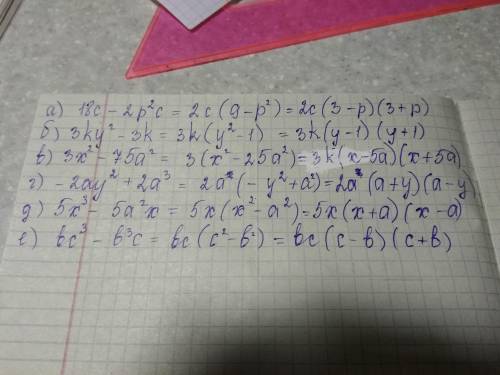 а) 18c - 2p²c = 2c(9-p²) = 2c(3-p)(3+p)
б) 3ky² - 3k = 3k(y²-1) = 3k(y-1)(y+1)
в) 3x² - 75a² = 3(x²-25a²) = 3k(x-5a)(x+5a)
г) -2ay² + 2a³ = 2a(-y²+a²) = 2a(a+y)(a-y
д) 5x³ - 5a²x = 5x(x²-a²) = 5x(x+a)(x-a)
е) bc³ - b³c = bc(c²-b²) = bc(c-b)(c+b)